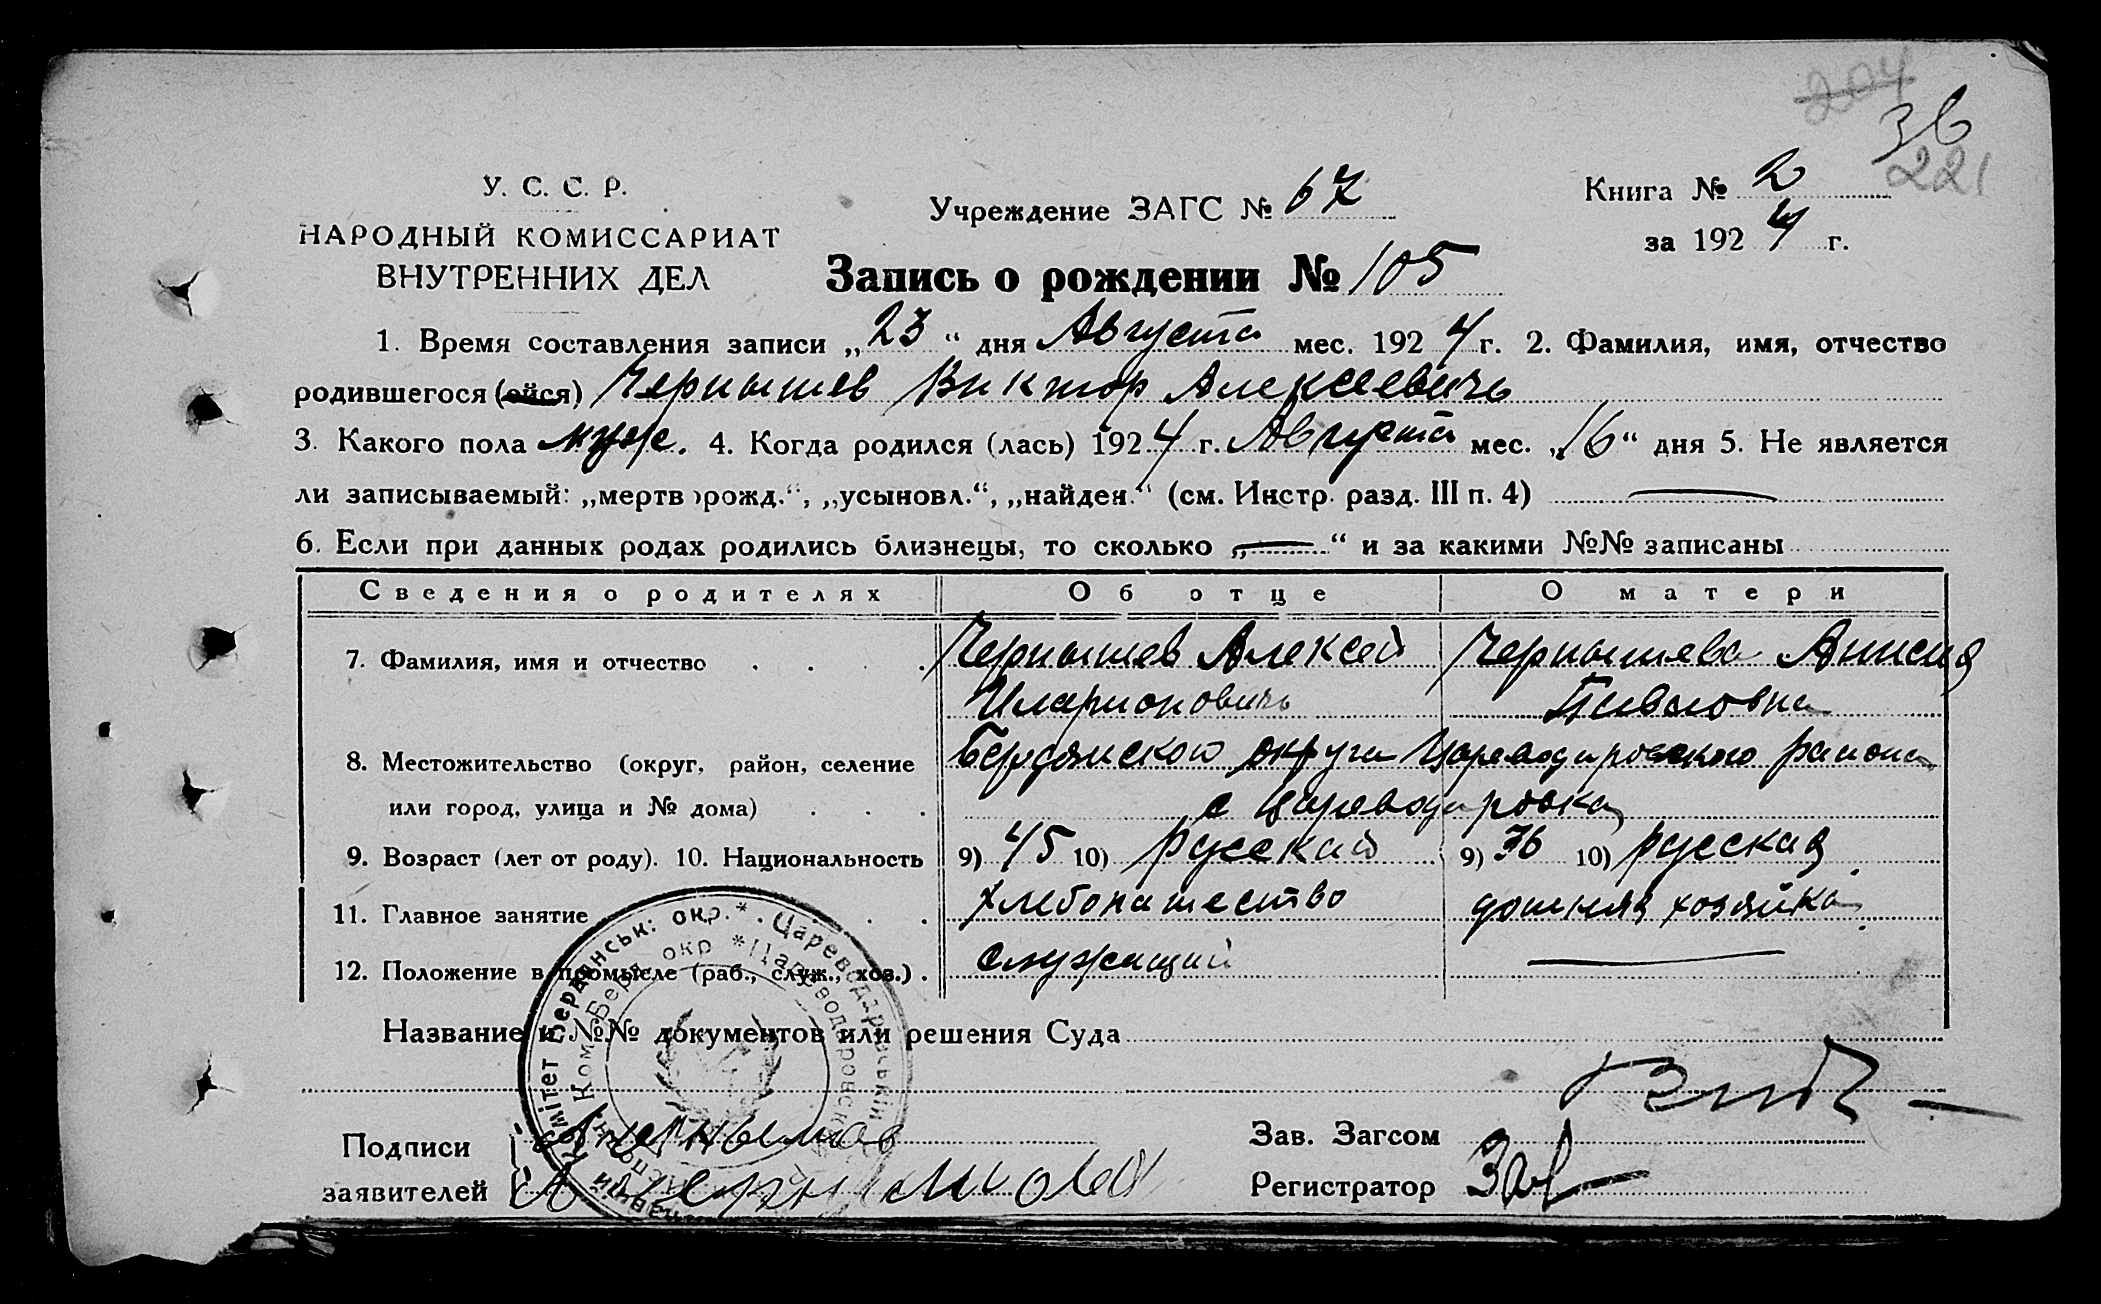 204
36
221
У. С. С. Р.
НАРОДНЫЙ КОМИССАРИАТ
ВНУТРЕННИХ ДЕЛ
Учреждение ЗАГС № 67
Книга № 2
за 1924 г.
Запись о рождении № 105
1. Время составления записи „23“ дня Августа мес. 1924 г. 2. Фамилия, имя, отчество
родившегося (ейся) Чернышев Виктор Алексеевичь
3. Какого пола муж. 4. Когда родился (лась) 1924 г. Августа мес. „16“ дня 5. Не является
ли записываемый: „мертворожд.“, „усыновл.“, „найден.“ (см. Инстр. разд. III п. 4) —
6. Если при данных родах родились близнецы, то сколько „—“ и за какими №№ записаны
Сведения о родителях Об отце О матери
7. Фамилия, имя и отчество . . . . Чернышев Алексей Чернышева Анисия
Иларионовичь
8. Местожительство (округ, район, селение Бердянского округа Цареводаровского района
или город, улица и № дома) . . . с Цареводаровка
9. Возраст (лет от роду). 10. Национальность 9) 45 10) русский 9) 36 10) русская
11. Главное занятие . . . хлебопашество домшняя хозяйка
12. Положение в промысле (раб., служ., хоз.) . служащий —
Название и №№ документов или решения Суда
Подписи
заявителей
Зав. Загсом
Регистратор